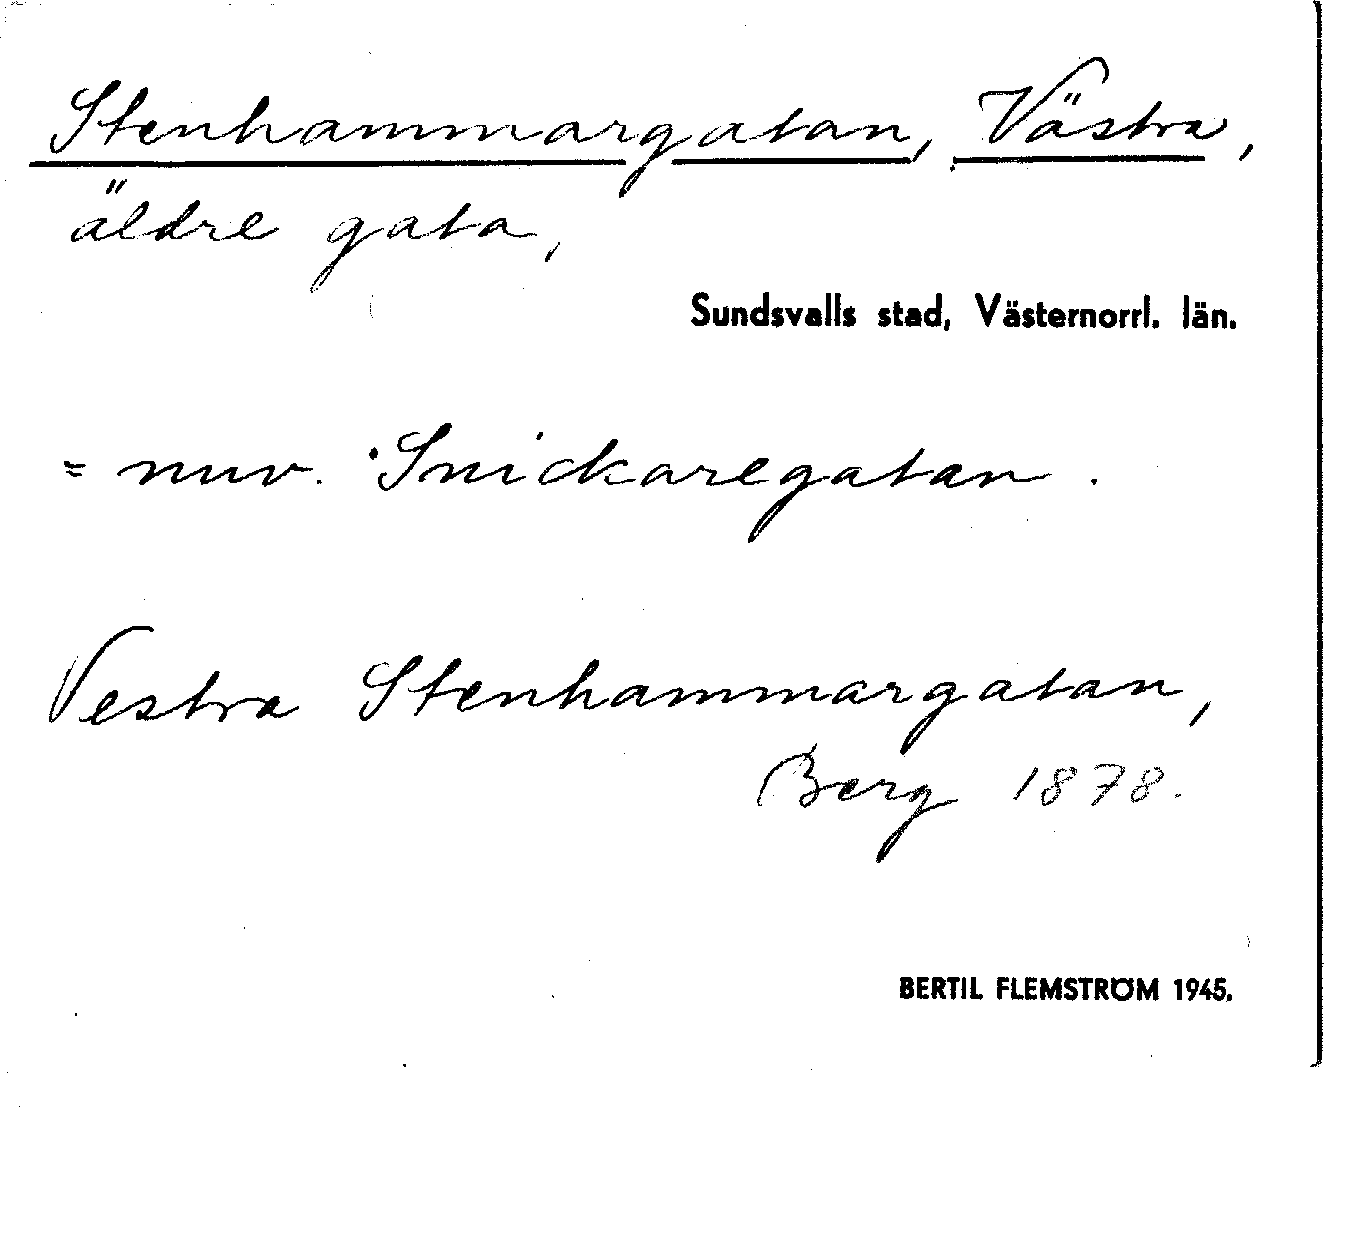 Stenhammargatan, Västra,
äldre gata,
Sundsvalls stad, Västernorrl. län.
= nuv. Snickaregatan.
Vestra Stenhammargatan,
Berg 1878.
BERTIL FLEMSTRÖM 1945.